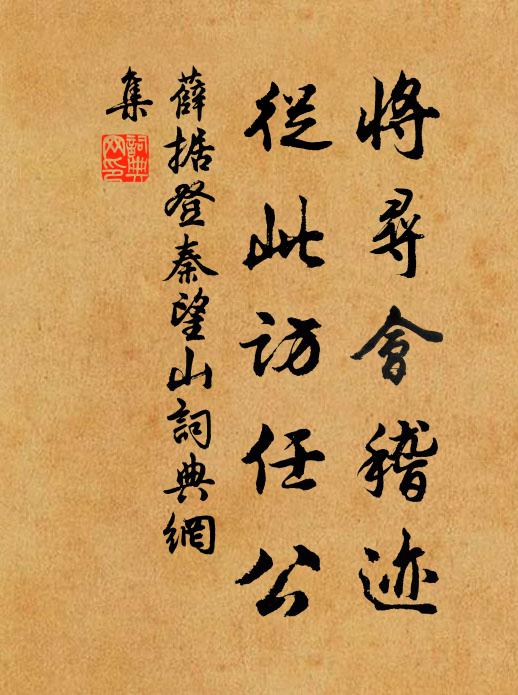 將尋會稽迹
從此訪任公
薛据登秦望山詞典網
集
詞典
网印